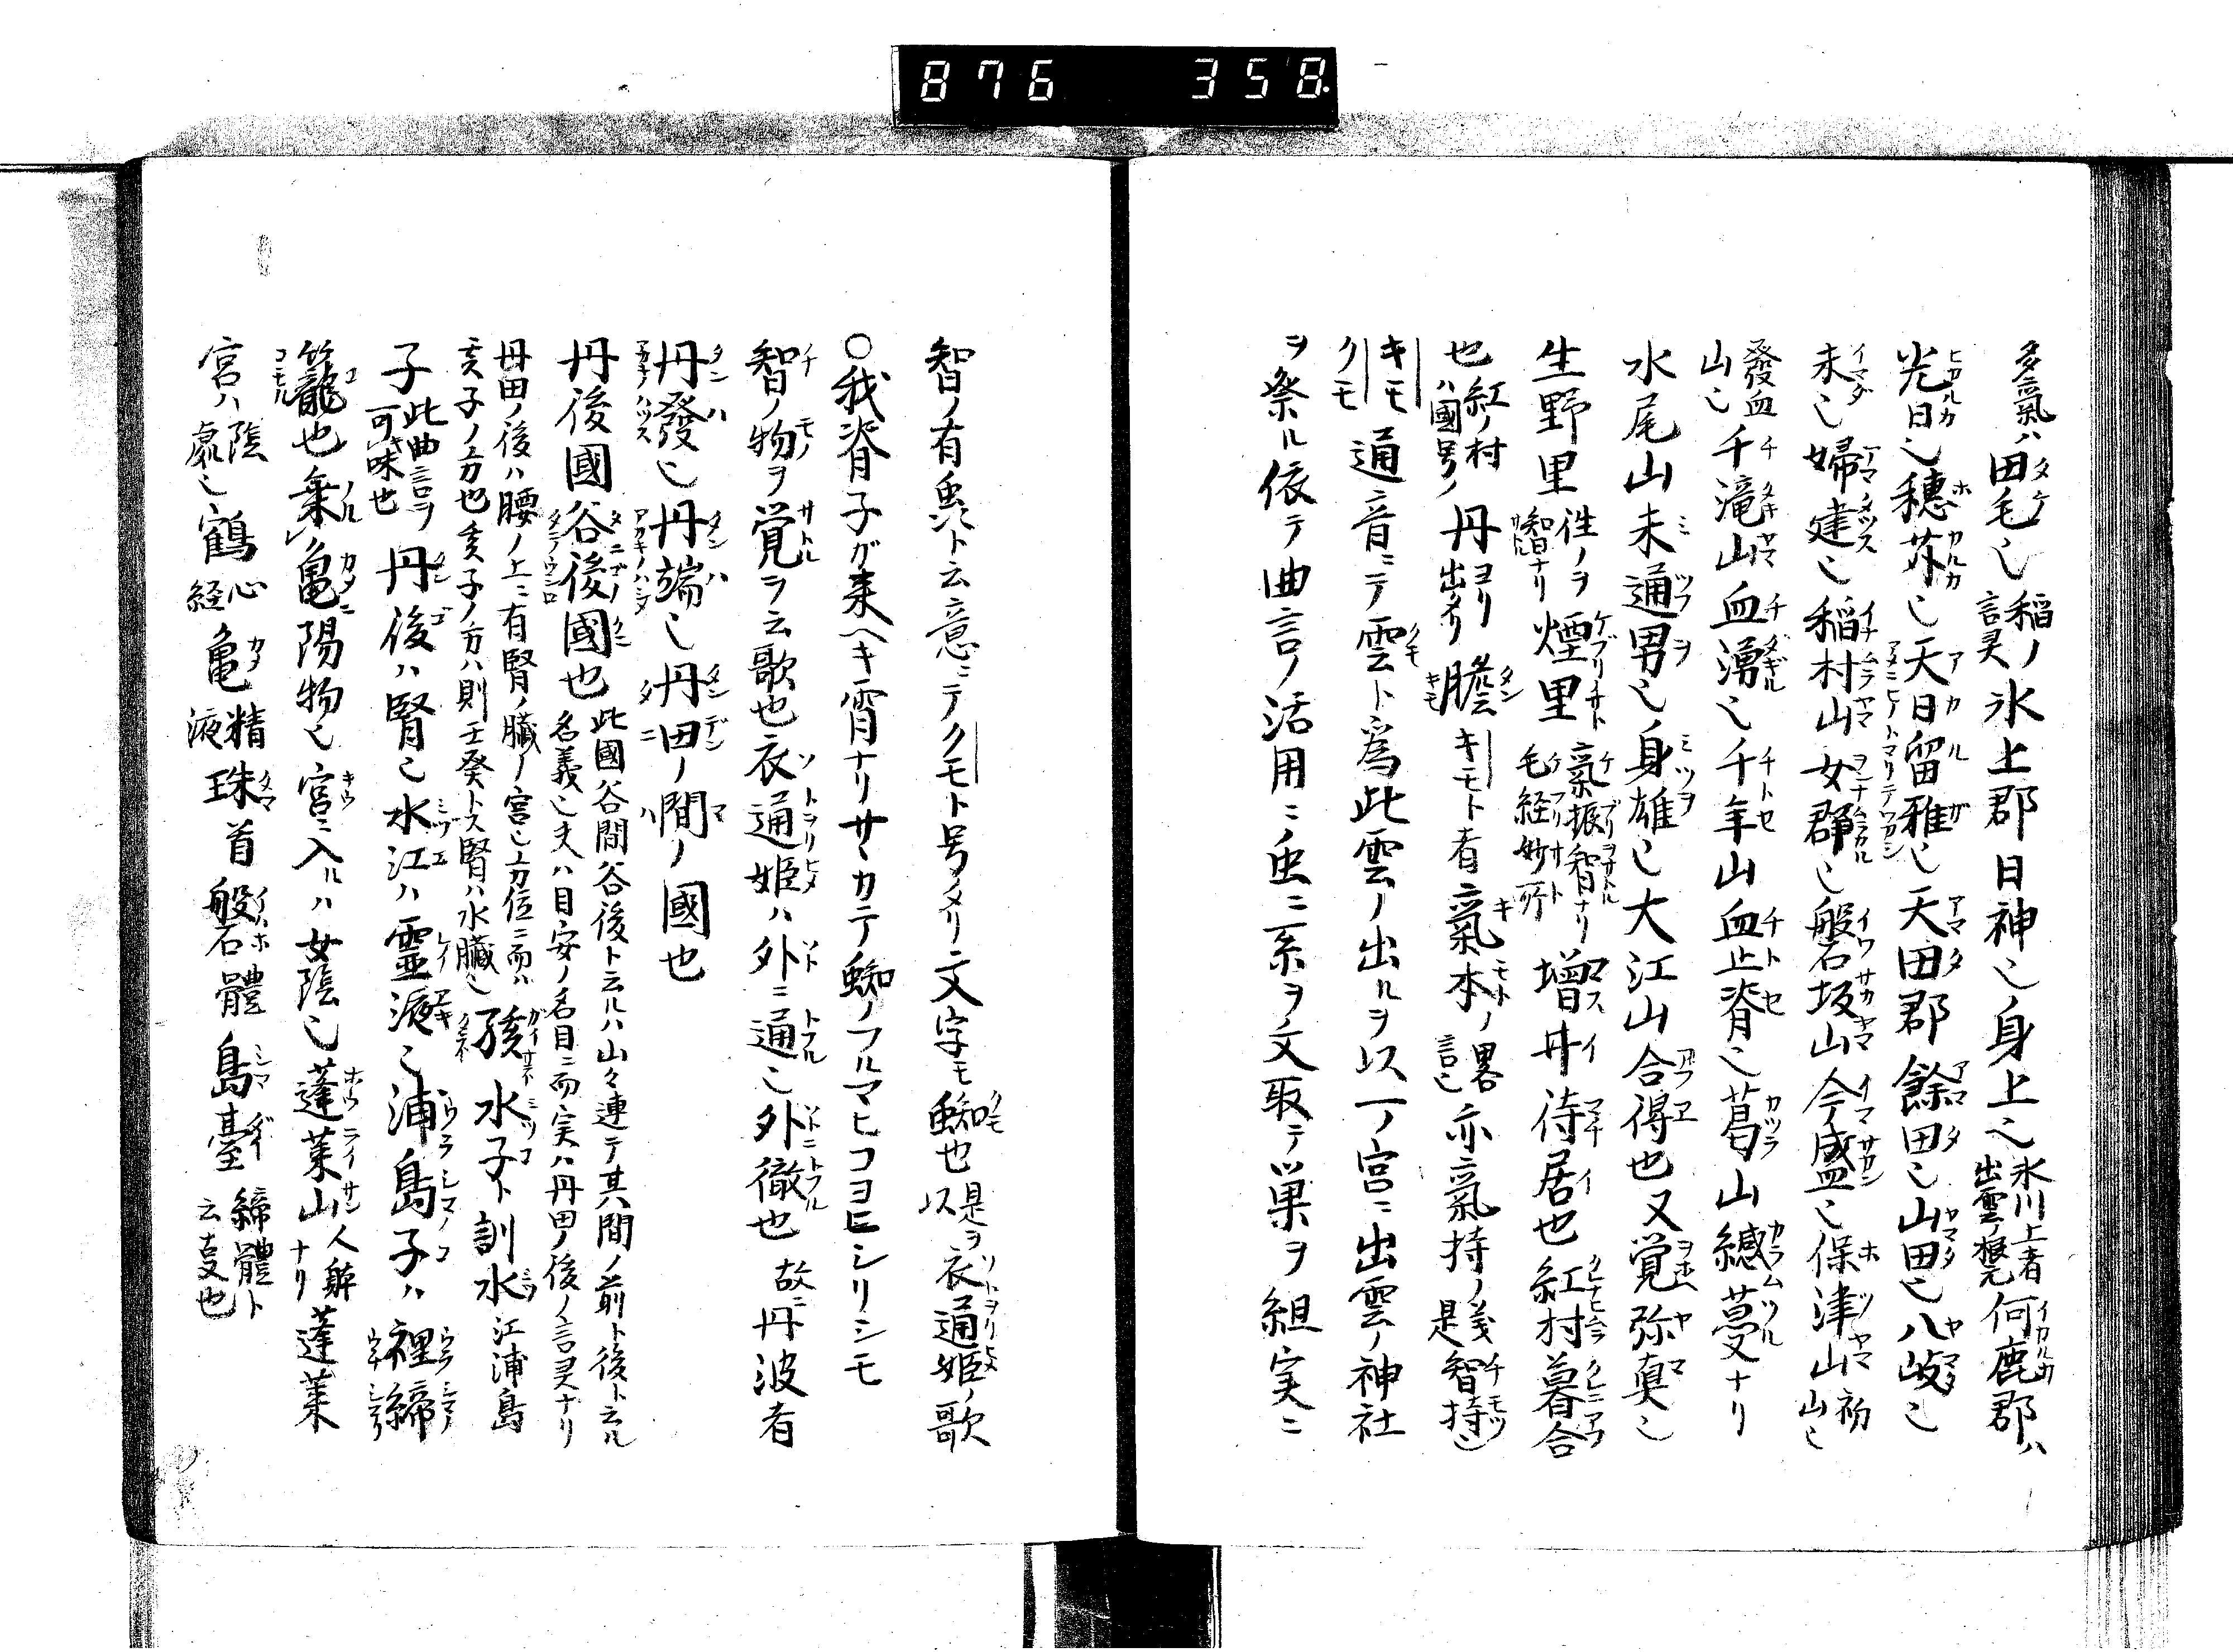 876 358
多氣ハ田毛也稲ノ言灵氷上郡日神也身上也氷川上者出雲ノ何鹿郡ハ
光日也穂苅也天日留雅也天田郡餘田也山田也八岐也
未也婦建也稲村山女群也磐坂山今盛也保津山初山也
發血山也千滝山血湧也千年山血止脊也葛山繊蔓ナリ
水尾山未通男也身雄也大江山合得也又覚弥真也
生野里性ノヲ智ナリ煙里氣振智ナリ毛経妙所増井待居也紅村暮合
也紅ノ村ハ國号ノ丹ヨリ出タリ膽キモト者氣本ノ畧言也亦氣持ノ義是智持也
キモクモ通音ニテ雲ト為此雲ノ出ルヲ以一ノ宮ニ出雲ノ神社
ヲ祭ル依テ曲言ノ活用ニ虫ニ系ヲ文取テ巣ヲ組実ニ
智ノ有虫ト云意ニテクモト号メリ文字モ蜘也是ヲ以衣通姫ノ歌
〇我脊子ガ来ヘキ宵ナリサヽカテ蜘ノフルマヒコヨヒシリシモ
智ノ物ヲ覚ヲ云歌也衣通姫ハ外ニ通也外徹也故ニ丹波者
丹發也丹端也丹田ノ間ノ國也
丹後國谷後國也此國谷間谷後ト云ルハ山々連テ其間ノ前ト後ト云ル名義也夫ハ目安ノ名目ニ而実ハ丹田ノ後ノ言灵ナリ
丹田ノ後ハ腰ノ上ニ有腎ノ臓ノ宮也方位ニ而ハ亥子ノ方也亥子ノ方ハ則壬癸トス腎ハ水臓也孩水子ト訓水江浦島
子此曲言ヲ可味也丹後ハ腎也水江ハ靈液也浦島子ハ裡締
籠也乗ノ亀陽物也宮ニ入ルハ女陰也蓬莱山人躰ナリ蓬莱
宮ハ陰處也鶴心経亀精液珠首磐石體島臺締體ト云支也